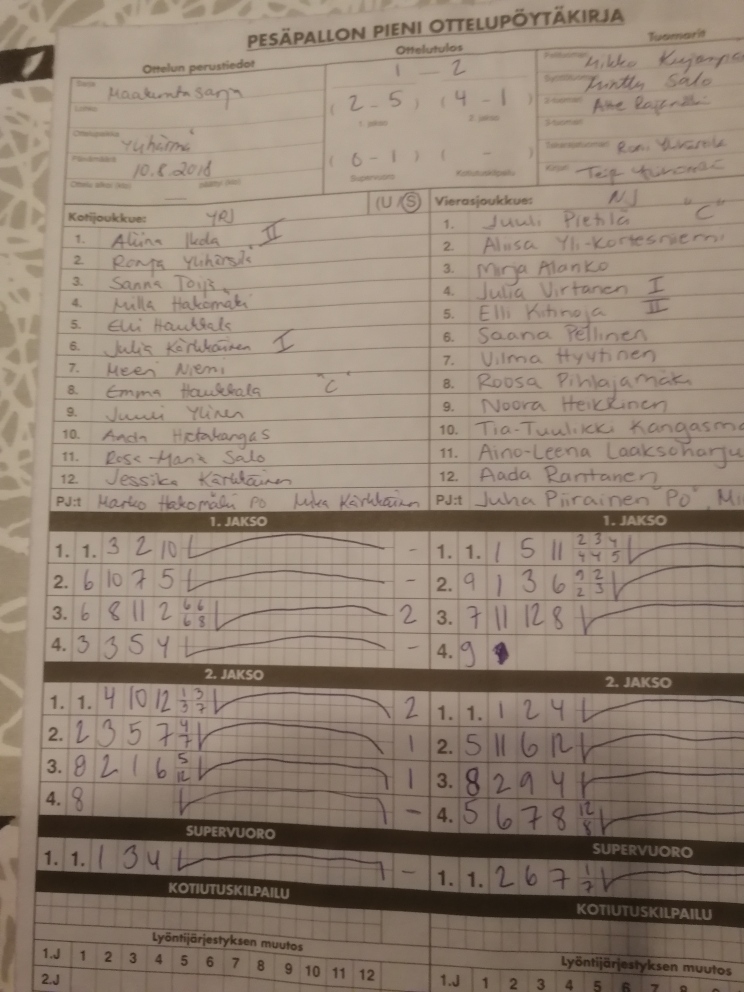 PESÄPALLON PIENI OTTELUPÖYTÄKIRJA
Ottelun perustiedot
Ottelutulos
Tuomarit
1 - 2
(2 - 5) (4 - 1)
(6 - 1) ( - )
Supervuoro Kotiutuskilpailu
Maakuntasarja
Ylihärmä
10.8.2018
Mikko
Salo
Kotijoukkue: YRJ (U/S)
1. Aliina Ikola II
2. Ronja
3. Sanna
4. Milla Hakomäki
5. Elli Haukkala
6. Julia Kärkkäinen I
7. Meeri Niemi
8. Emma Haukkala "C"
9. Juuli Ylinen
10. Anda Hietakangas
11. Rosa-Maria Salo
12. Jessika Kärkkäinen
PJ:t Marko Hakomäki PO Mika Kärkkäinen
Vierasjoukkue: NJ
1. Juuli Pietilä "C"
2. Aliisa Yli-Kortesniemi
3. Mirja Alanko
4. Julia Virtanen I
5. Elli Kitinoja II
6. Saana Pellinen
7. Vilma Hyytinen
8. Roosa Pihlajamäki
9. Noora Heikkinen
10. Tia-Tuulikki
11. Aino-Leena Laaksoharju
12. Aada Rantanen
PJ:t Juha Piirainen "PO"
1. JAKSO
1. 1. 3 2 10 -
2. 6 10 7 5 -
3. 6 8 11 2 6 6 6 8 2
4. 3 3 5 4 -
1. JAKSO
1. 1. 1 5 11 2 3 4 4 4 5
2. 9 1 3 6 9 2 2 3
3. 7 11 12 8
4. 9
2. JAKSO
1. 1. 4 10 12 1 3 3 7 2
2. 2 3 5 7 4 7 1
3. 8 2 1 6 5 12 1
4. 8 -
2. JAKSO
1. 1. 1 2 4
2. 5 11 6 12
3. 8 2 9 4
4. 5 6 7 8 12 8
SUPERVUORO
1. 1. 1 3 4 -
SUPERVUORO
1. 1. 2 6 7 1 7
KOTIUTUSKILPAILU
KOTIUTUSKILPAILU
Lyöntijärjestyksen muutos
1.J 1 2 3 4 5 6 7 8 9 10 11 12
2.J
Lyöntijärjestyksen muutos
1.J 1 2 3 4 5 6 7 8 9